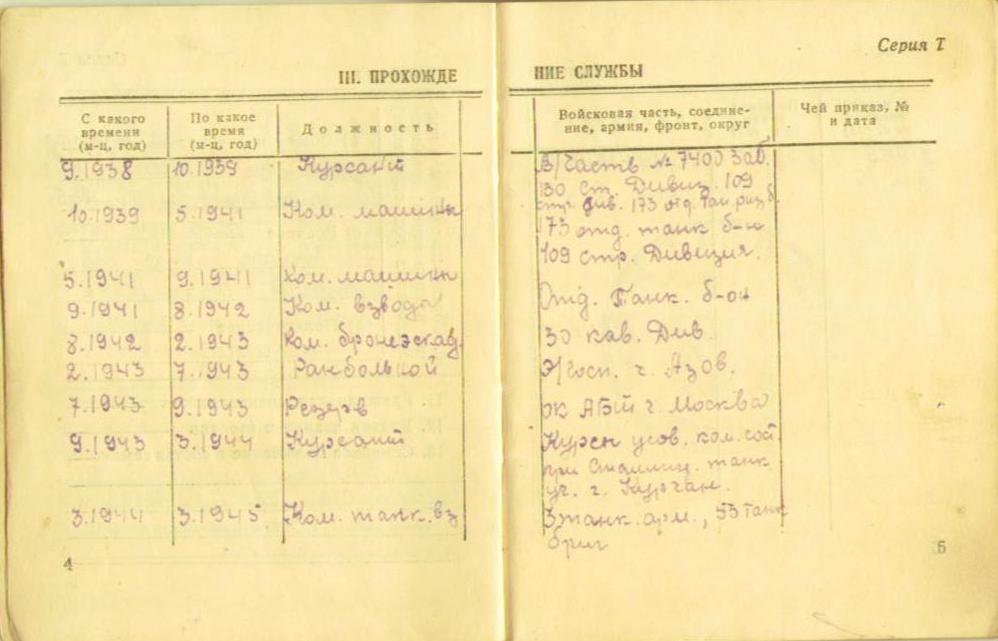 Серия Т
III. ПРОХОЖДЕ
НИЕ СЛУЖБЫ
С какого
времени
(м-ц, год)
По какое
время
(м-ц, год)
Должность
Войсковая часть, соедине-
ние, армия, фронт, округ
Чей приказ, №
и дата
9.1938 10.1939 Курсант
10.1939 5.1941 Ком. машины
5.1941 9.1941 Ком. машины
9.1941 8.1942 Ком. взвода
8.1942 2.1943 Ком. бронеэскад.
2.1943 7.1943 Ранбольной
7.1943 9.1943 Резерв
9.1943 3.1944 Курсант
3.1944 3.1945 Ком. танк. вз
4
В/Часть № 7400 Заб.
30 ст. Дивиз. 109
стр. див. 173 отд.
73 отд. танк б-н
109 стр. Дивизия.
Отд. Танк. б-он
30 кав. Див.
Э/Госп. г. Азов.
г. Москва
Курсы усов. ком. сост
при Сталинг. танк
уч. г. Курган.
3 танк. арм., 53 танк
бриг
5